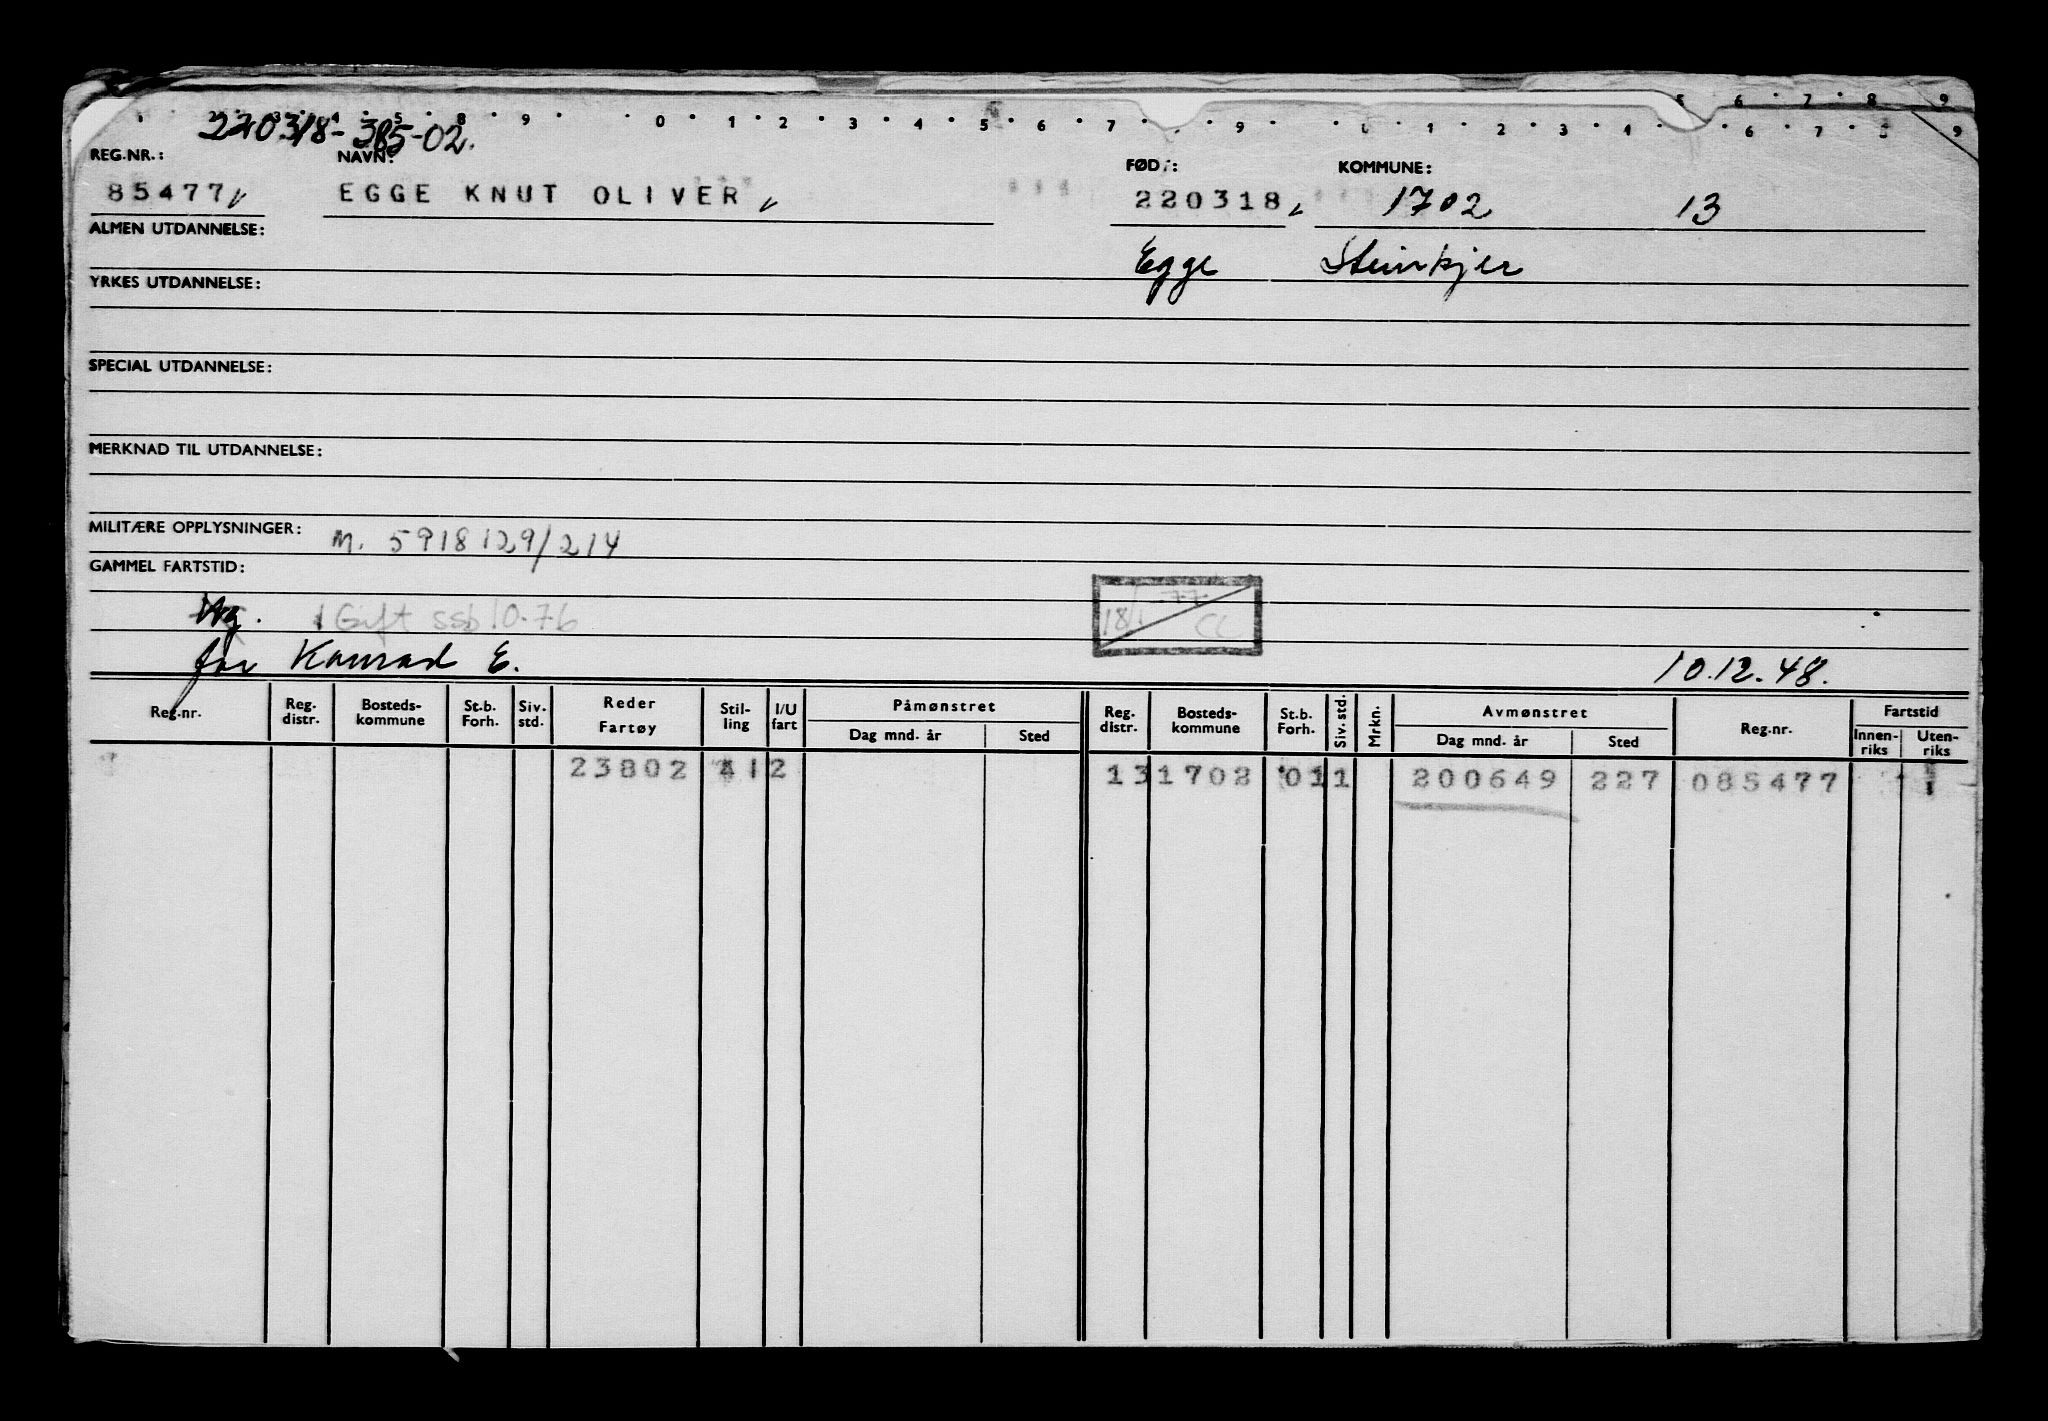 220318-385-02.
REG.NR.: NAVN: FØDT: KOMMUNE:
85477 EGGE KNUT OLIVER 220318 1702 13
ALMEN UTDANNELSE: Egge Steinkjer
YRKES UTDANNELSE:
SPECIAL UTDANNELSE:
MERKNAD TIL UTDANNELSE:
MILITÆRE OPPLYSNINGER: M. 5918129/214
GAMMEL FARTSTID:
Gift ssb 10.76 18/1 77 CL
far Konrad E. 10.12.48.
Reg.nr. Reg. distr. Bosteds-kommune St.b. Forh. Siv. std. Reder Fartøy Stil-ling I/U fart Påmønstret Dag mnd. år Sted Reg. distr. Bosteds-kommune St.b. Forh. Siv. std. Mrkn. Avmønstret Dag mnd. år Sted Reg.nr. Fartstid Innen-riks Uten-riks
23802 412 131702 011 200649 227 085477 1